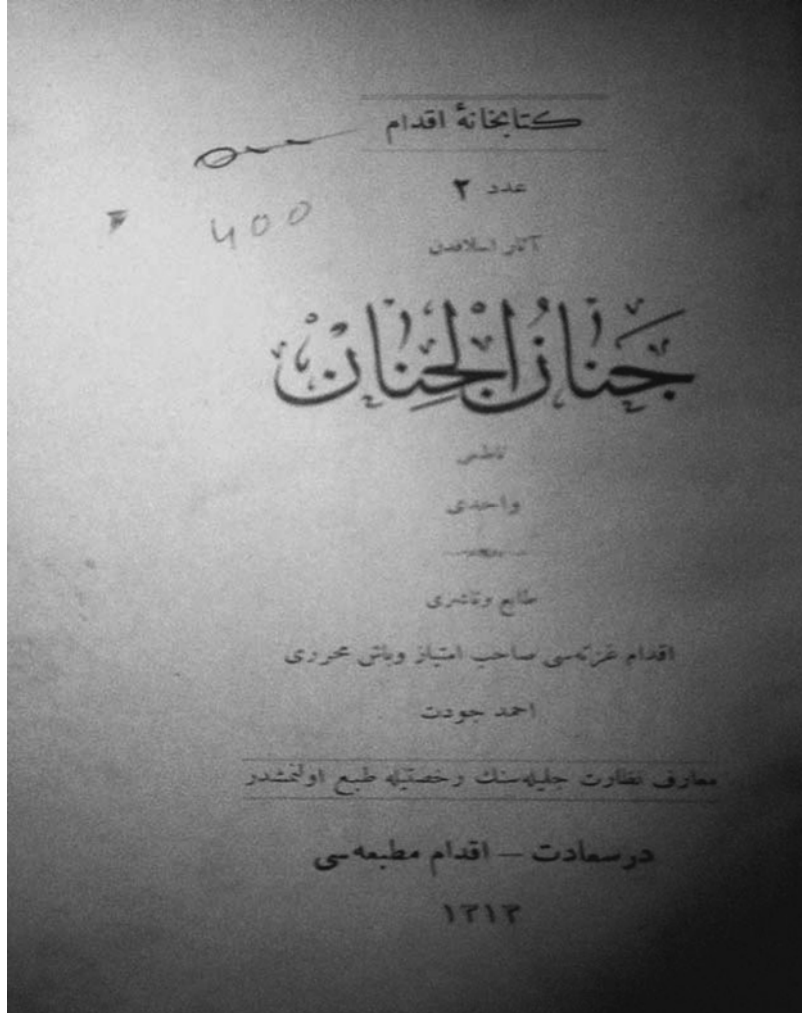 كتابخانهٔ اقدام
عدد ٢
400
آثار اسلافدن
جَنَانُ الْجِنَان
ناظمى
واحدى
طابع وناشرى
اقدام غزته‌سى صاحب امتياز وباش محررى
احمد جودت
معارف نظارت جليله‌سنك رخصتيله طبع اولنمشدر
درسعادت — اقدام مطبعه‌سى
١٣١٣